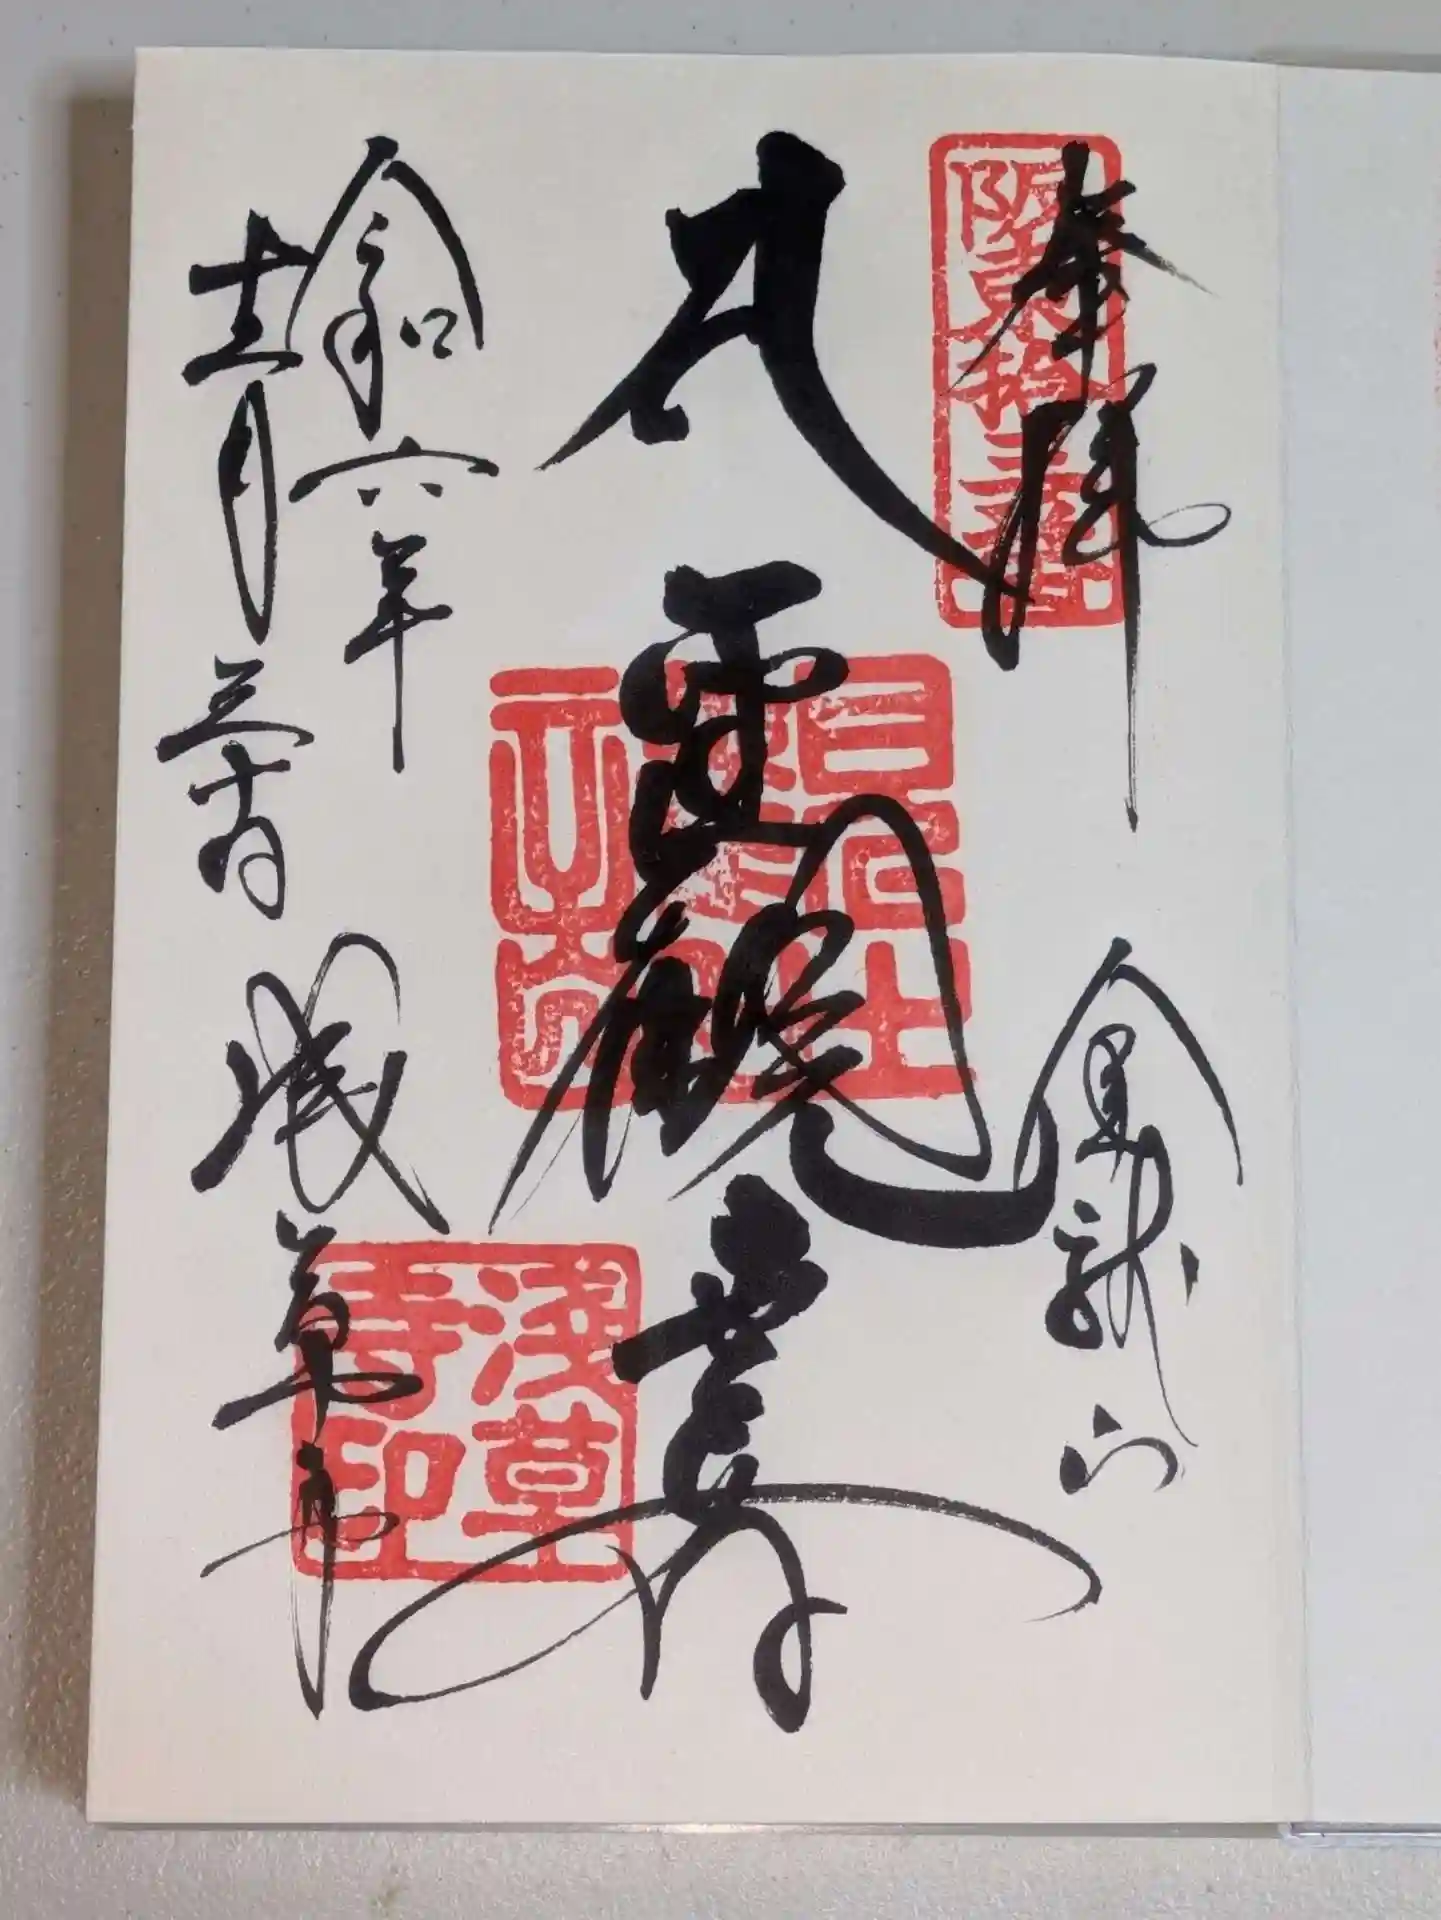 奉拝 金龍山
阪東拾三番
聖観世音
令和六年
十二月三十日 浅草寺
浅草寺印